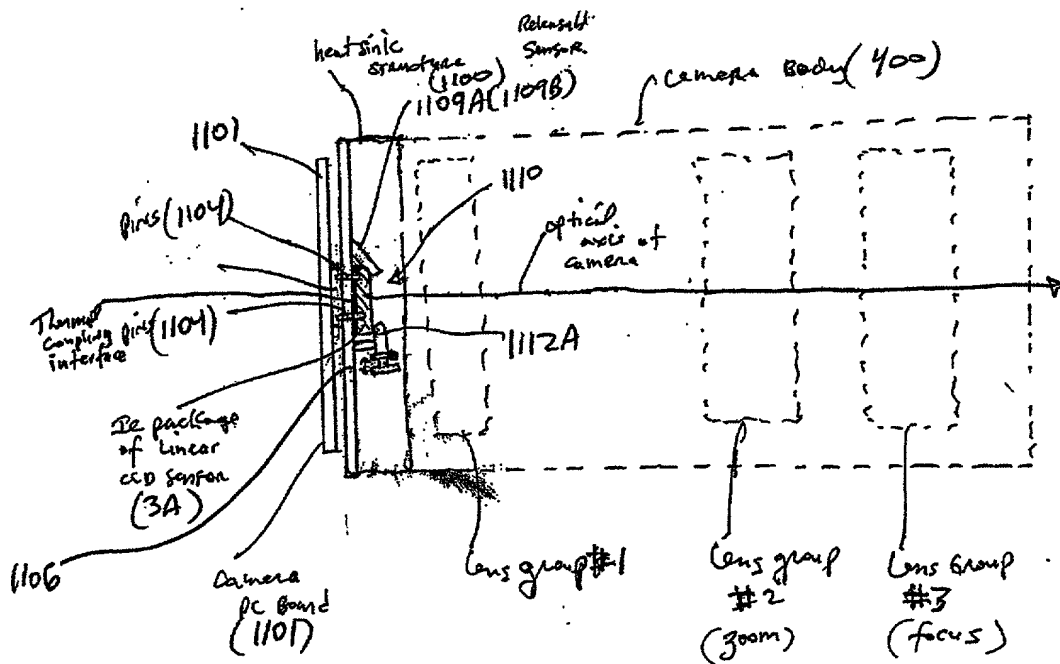 heatsink
structure
(1100)
Releasable
Sensor
1109A (1109B)
Camera Body (400)
1101
1110
pins (1104)
optical
axis of
camera
Thermal
coupling
interface
pins (1104)
1112A
IC package
of Linear
CCD sensor
(3A)
1106
Camera
PC Board
(1101)
Lens group #1
Lens group
#2
(zoom)
Lens Group
#3
(focus)